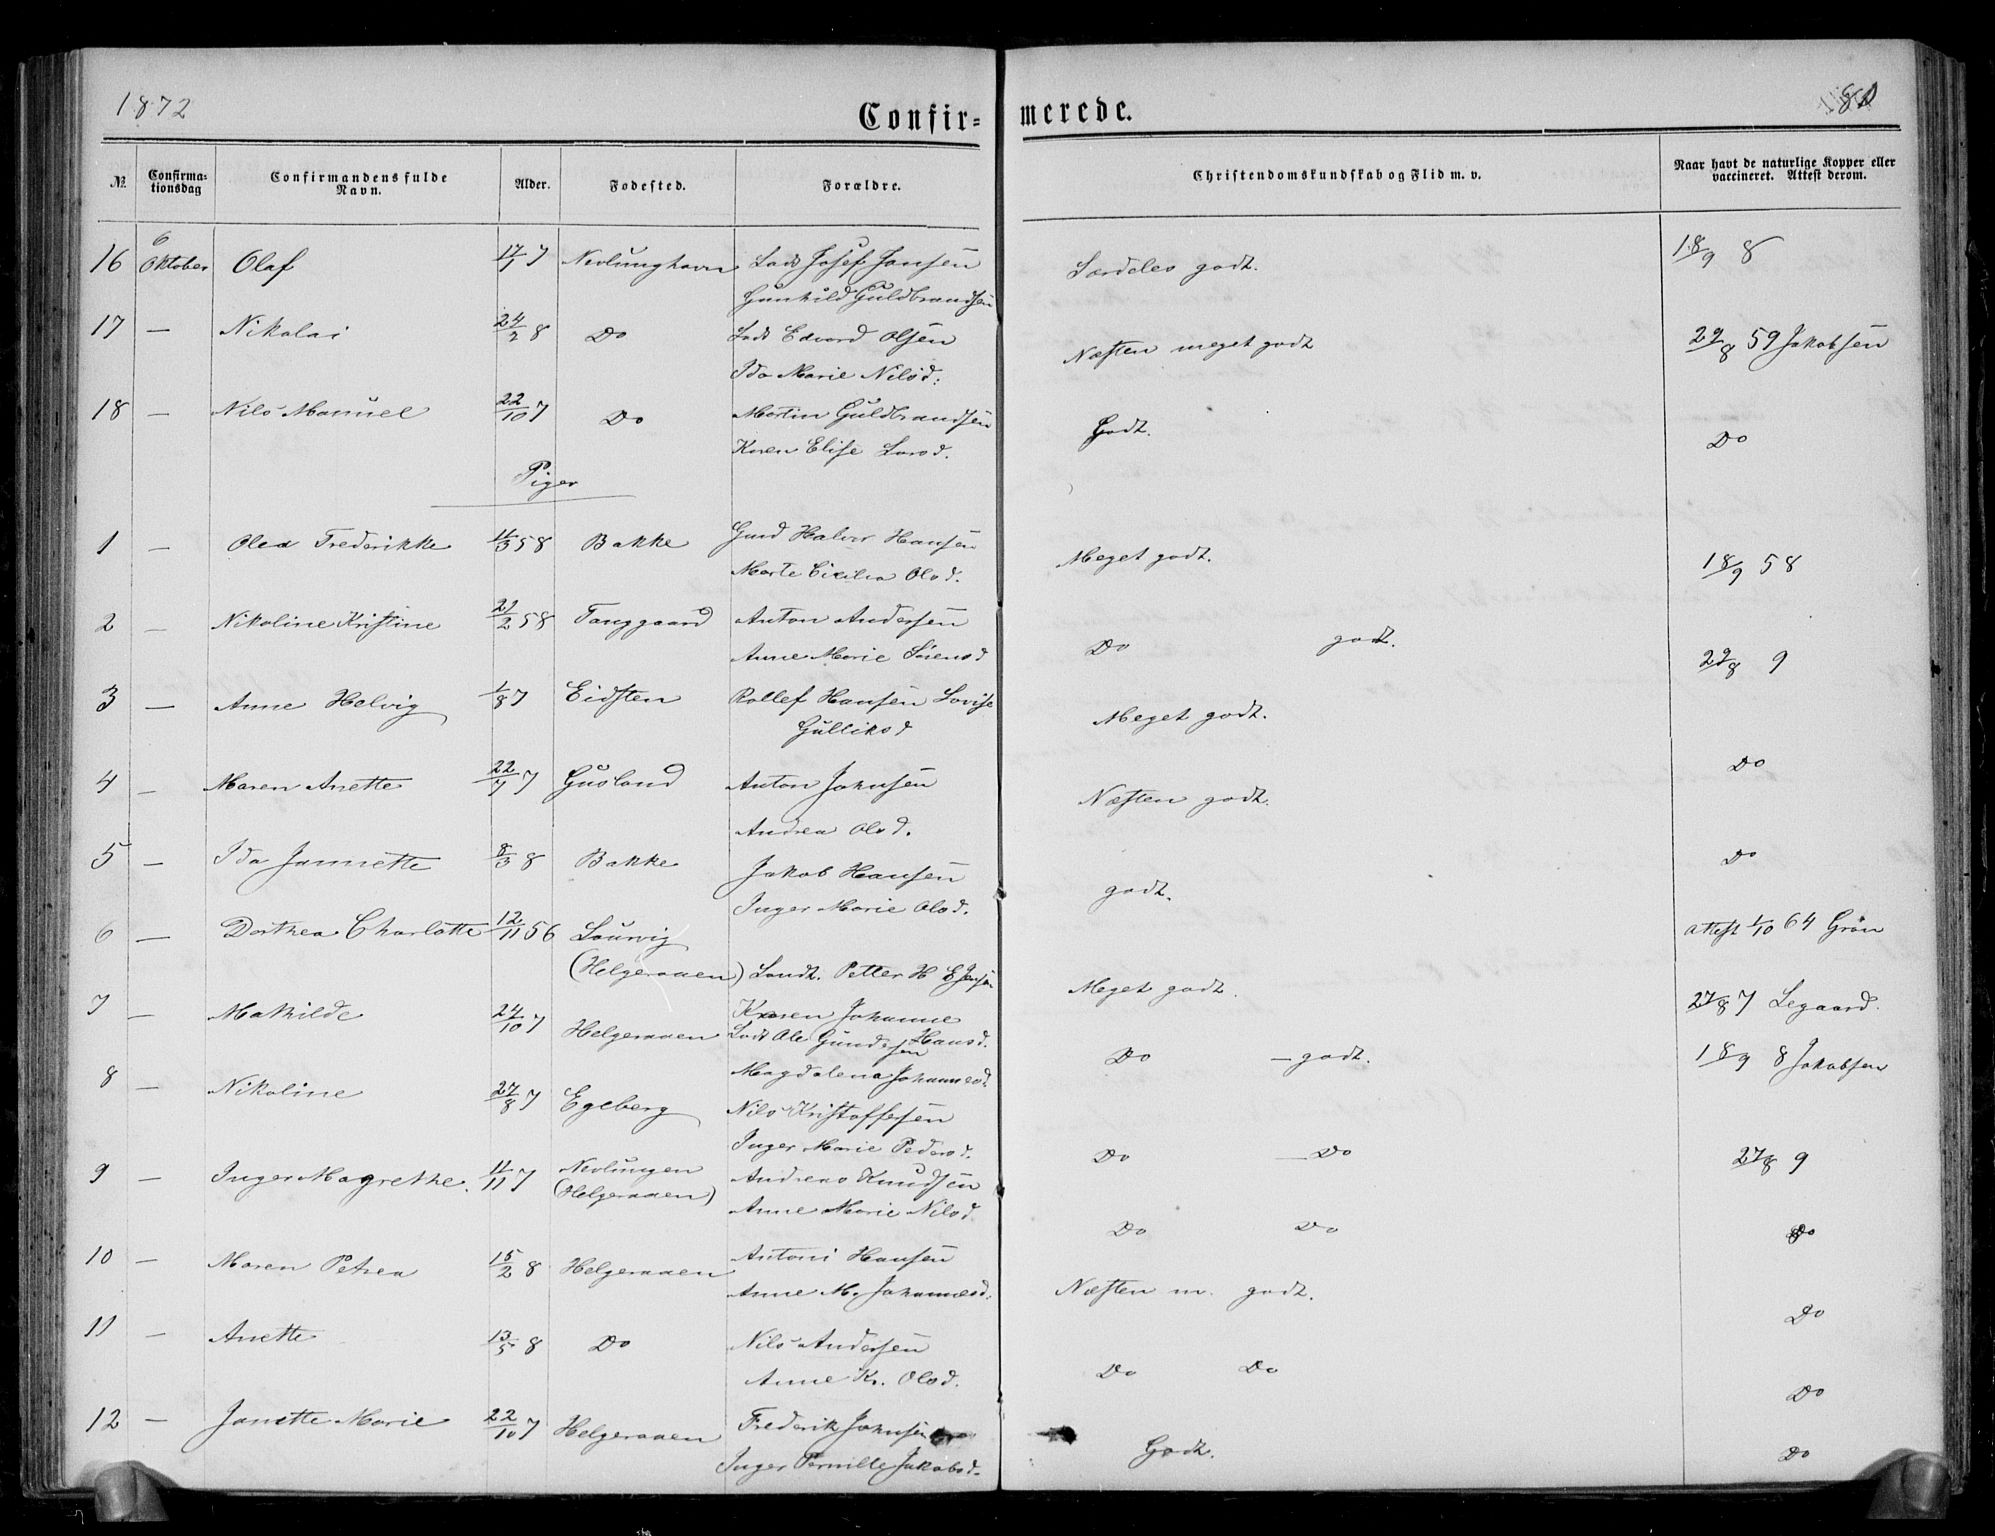 1872
Confir- merede.
81
№ Confirma- tionsdag Confirmandens fulde Navn. Alder. Fødested. Forældre. Christendomskundskab og Flid m. v. Naar havt de naturlige Kopper eller vaccineret. Attest derom.
16 6 Oktober Olaf 17/1 7 Nevlunghavn Lods Josef Jansen Særdeles godt. 18/9 8
Gunhild Guldbrandsen
17 — Nikolai 24/2 8 Do Lods Edvard Olsen Næsten meget godt 29/8 59 Jakobsen
Ida Marie Nilsd.
18 — Nils Manuel 22/10 7 Do Martin Guldbrandsen Godt. Do
Karen Elise Larsd.
Piger
1 — Olea Frederikke 11/3 58 Bakke Gmd Halvor Hansen Meget godt. 18/9 58
Marte Cicilia Olsd.
2 — Nikoline Kristine 21/2 58 Tanggaard Anton Andersen Do godt. 29/8 9
Anne Marie Sørensd
3 — Anne Helvig 1/8 7 Eidsten Rollef Hansen Lovise Meget godt. Do
Gulliksd
4 — Maren Anette 22/7 7 Gusland Anton Johnsen Næsten godt. Do
Andrea Olsd.
5 — Ida Jannette 8/3 8 Bakke Jakob Hansen godt. attest 1/10 64 Grøn
Inger Marie Olsd.
6 — Dorthea Charlotte 12/11 56 Laurvig
(Helgeraaen) Landt. Petter H E Jensen Meget godt. 27/8 7 Legaard.
Karen Johanne
Hansd.
7 — Mathilde 24/10 7 Helgeraaen Lods Ole Gundersen Do — godt. 18/9 8 Jakobsen
Magdalena Johannesd.
8 — Nikoline 27/8 7 Egeberg Nils Kristoffesen Do — Do 27/8 9
Inger Marie Pedersd.
9 — Inger Magrethe. 11/11 7 Nevlungen Andreas Knudsen Do Do Do
(Helgeraaen) Anne Marie Nilsd.
10 — Maren Petrea 15/2 8 Helgeraaen Antoni Hansen Næsten m. godt. Do
Anne M. Johannesd.
11 — Anette 13/5 8 Do Nils Andersen Do Do Do
Anne K. Olsd.
12 — Janette Marie 22/10 7 Helgeraaen Frederik Johnsen Godt. Do
Inger Pernille Jakobsd.